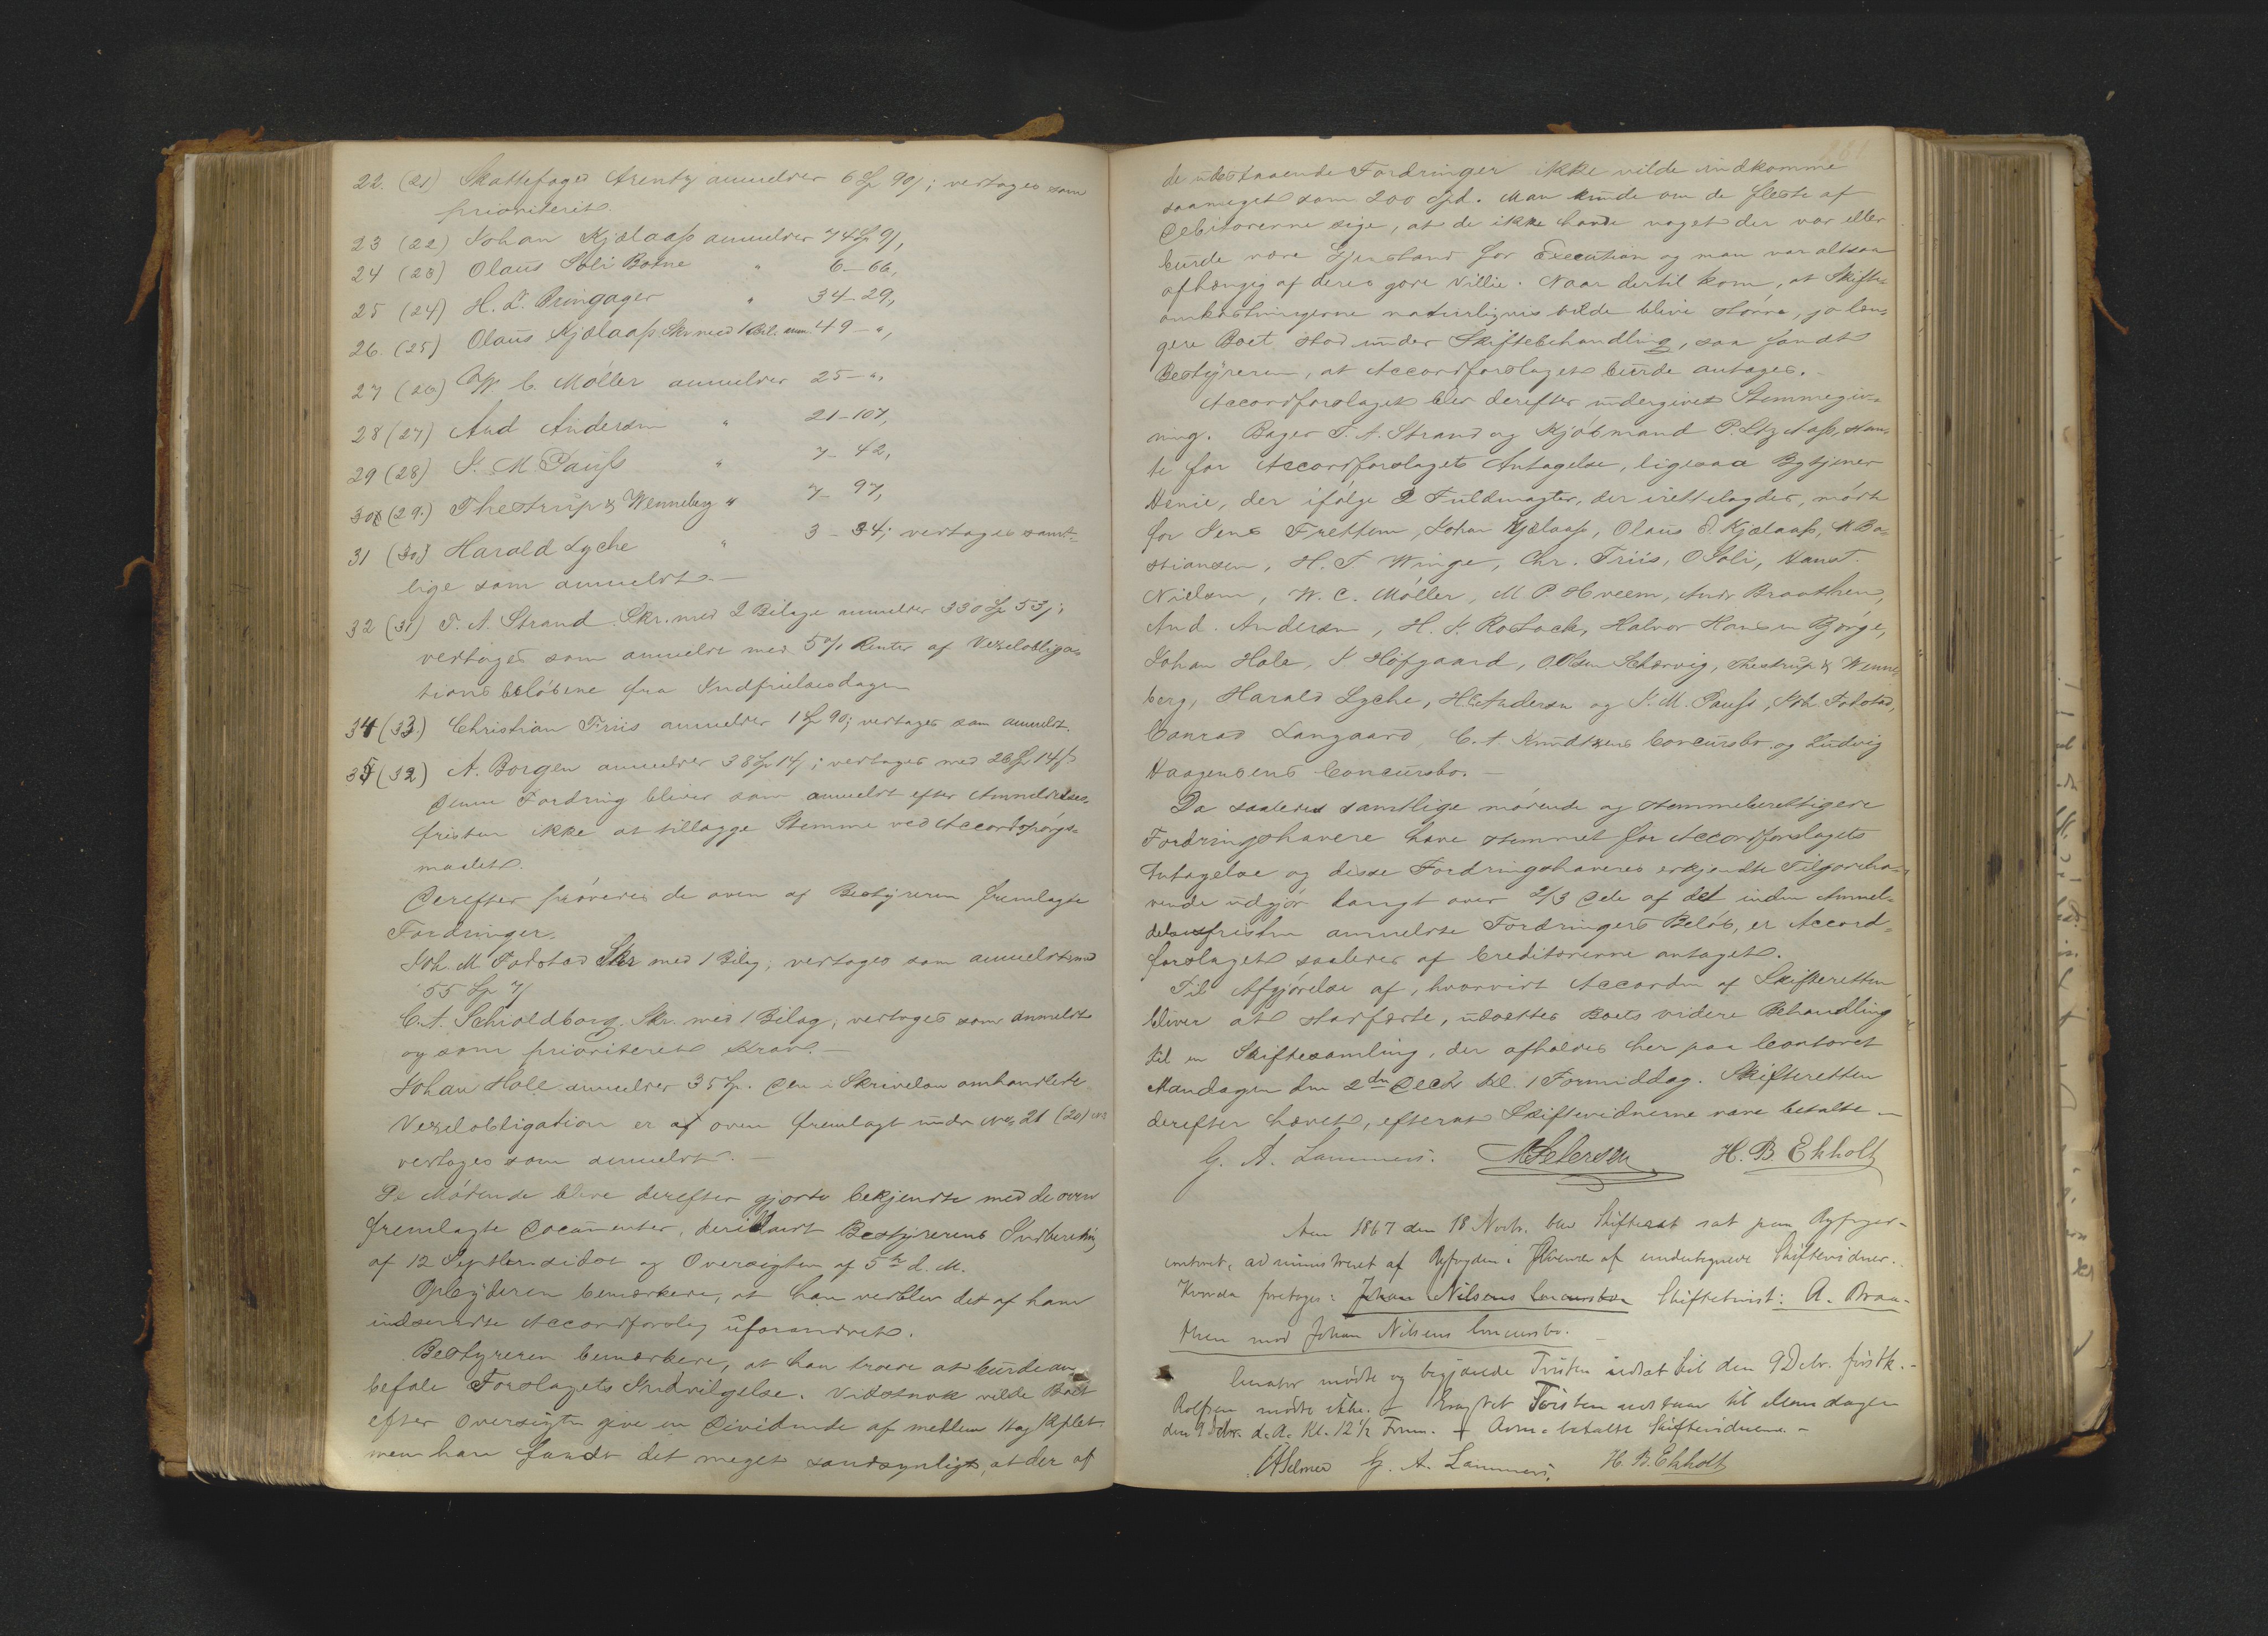 22. (21) Skattefoged Arentz anmelder 6 Sp 90 β; vedtages som
prioriteret.
23 (22) Johan Kjølaaß anmelder 74 Sp 9 β,
24 (23) Olaus Soli Borne " 6 – 66,
25 (24) H. L. Bringager " 34 – 29,
26. (25) Olaus Kjølaaß Skr. med 1 Bil. anm. 49 – ",
27 (26) W. C. Møller anmelder 25 – ",
28 (27) And Andersen " 21 – 107,
29 (28) J. M. Pauss " 7 – 42,
30 (29.) Thestrup & Wenneberg " 7 – 97,
31 (30.) Harald Lyche " 3 – 34; vedtages samt-
lige som anmeldt. –
32 (31) T. A. Strand. Skr. med 2 Bilage anmelder 330 Sp 53 β;
vedtages som anmeldt med 5 % Renter af Vexelobliga-
tions beløbene fra Indfrielsesdagen
34 (33.) Christian Friis anmelder 1 Sp 90; vedtages som anmeldt.
35 (32) A. Borgen anmelder 38 Sp 14 β; vedtages med 26 Sp 14 β
Denne Fordring bliver som anmeldt efter Anmeldelses-
fristen ikke at tillægge Stemme ved Accordspørgs-
maalet.
Derefter prøvedes de oven af Bestyreren fremlagte
Fordringer.
Joh. M. Fodstad Skr med 1 Bilag; vedtages som anmeldt med
55 Sp 7 β
C. A. Schioldborg. Skr. med 1 Bilag; vedtages som anmeldt
og som prioriteret Krav. –
Johan Hole anmelder 35 Sp. Den i Skrivelsen omhandlede
Vexelobligation er af oven fremlagt under No. 21 (20)
vedtages som anmeldt. –
De Mødende bleve derefter gjorte bekjendte med de oven
fremlagte Documenter, deriblandt Bestyrerens Indberetning
af 12 Septber sidst og Oversigten af 5te d. M.
Opbyderen bemærkede, at han vedblev det af ham
indsendte Accordforslag uforandret.
Bestyreren bemærkede, at han troede at burde an-
befale Forslagets Indvilgelse. Vidstnok vilde Boet
efter Oversigten give en Dividende af mellem
men han fandt det meget sandsynligt, at der af
de udestaaende Fordringer ikke vilde indkomme
saameget som 200 Spd. Man kunde om de fleste af
Debitorerne sige, at de ikke havde noget der var eller
burde være Gjenstand for Execution og man var altsaa
afhængig af deres gode Villie. Naar dertil kom, at Skifte-
omkostningerne naturligvis vilde blive større, jo læn-
gere Boet stod under Skiftebehandling, saa fandt
Bestyreren, at Accordforslaget burde antages. –
Accordforslaget blev derefter undergivet Stemmegiv-
ning. Bager T. A. Strand og Kjøbmand P. Aass, stem-
te for Accordforslagets Antagelse, ligesaa Bytjener
Henie, der ifølge 2 Fuldmagter, der irettelagdes, mødte
for Jens Frettem, Johan Kjølaaß, Olaus Kjølaaß, M Ba-
stiansen, H. T Winge, Chr. Friis, O Soli, Hans T.
Nielsen, W. C. Møller, M P Hveem, Andr Braathen,
And. Andersen, H. J. Rostock, Halvor Hansen Bjørge,
Johan Hole, J Høfgaard, O Olsen, Thestrup & Wenne-
berg, Harald Lyche, H C Andersen og J. M. Pauss, Joh Fodstad,
Conrad Langaard, C. A. Knudtzens Concursbo. og Ludvig
Haagensens Concursbo. –
Da saaledes samtlige mødende og stemmeberettigede
Fordringshavere have stemmet for Accordforslagets
Antagelse og disse Fordringshaveres erkjendte Tilgodeha-
vende udgjør langt over 2/3 Dele af det inden Anmel-
delsesfristen anmeldte Fordringers Beløb, er Accord-
forslaget saaledes af Creditorerne antaget.
Til Afgjørelse af, hvorvidt Accorden af Skifteretten
bliver at stadfæste, udsættes Boets videre Behandling
til en Skiftesamling, der afholdes her paa Contoret
Mandagen den 2den Decbr Kl. 1 Formiddag. Skifteretten
derefter hævet, efterat Skiftevidnerne vare betalte –
G. A. Lammers. M Petersen H. B. Ekholt
Aar 1867 den 18 Novbr. blev Skifteret sat paa Byfoged-
contoret, administreret af Byfogden i Overvær af undertegnede Skiftevidner.
Hvorda foretoges: Johan Nilsens Concursbo Skiftetvist: A. Braa-
then mod Johan Nilsens Concursbo. –
Curator mødte og begjærede Tvisten udsat til den 9 Debr. førstk. –
Rolfsen mødte ikke. – Eragtet Tvisten udstaar til Mandagen
den 9 Debr. d. A. Kl. 12 1/2 Form. – betalte Skiftevidnerne. –
Selmer G. A. Lammers. H. B. Ekholt